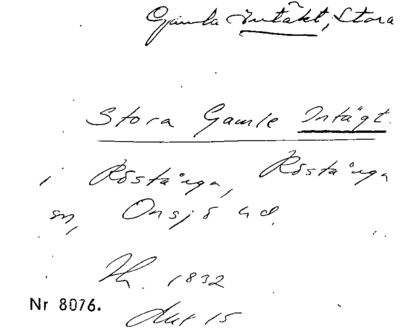 Gamla Intäkt, Stora
Stora Gamle Intägt.
i Röstånga, Röstånga
sn, Onsjö hd.
1832
Nr 8076.
Akt 15